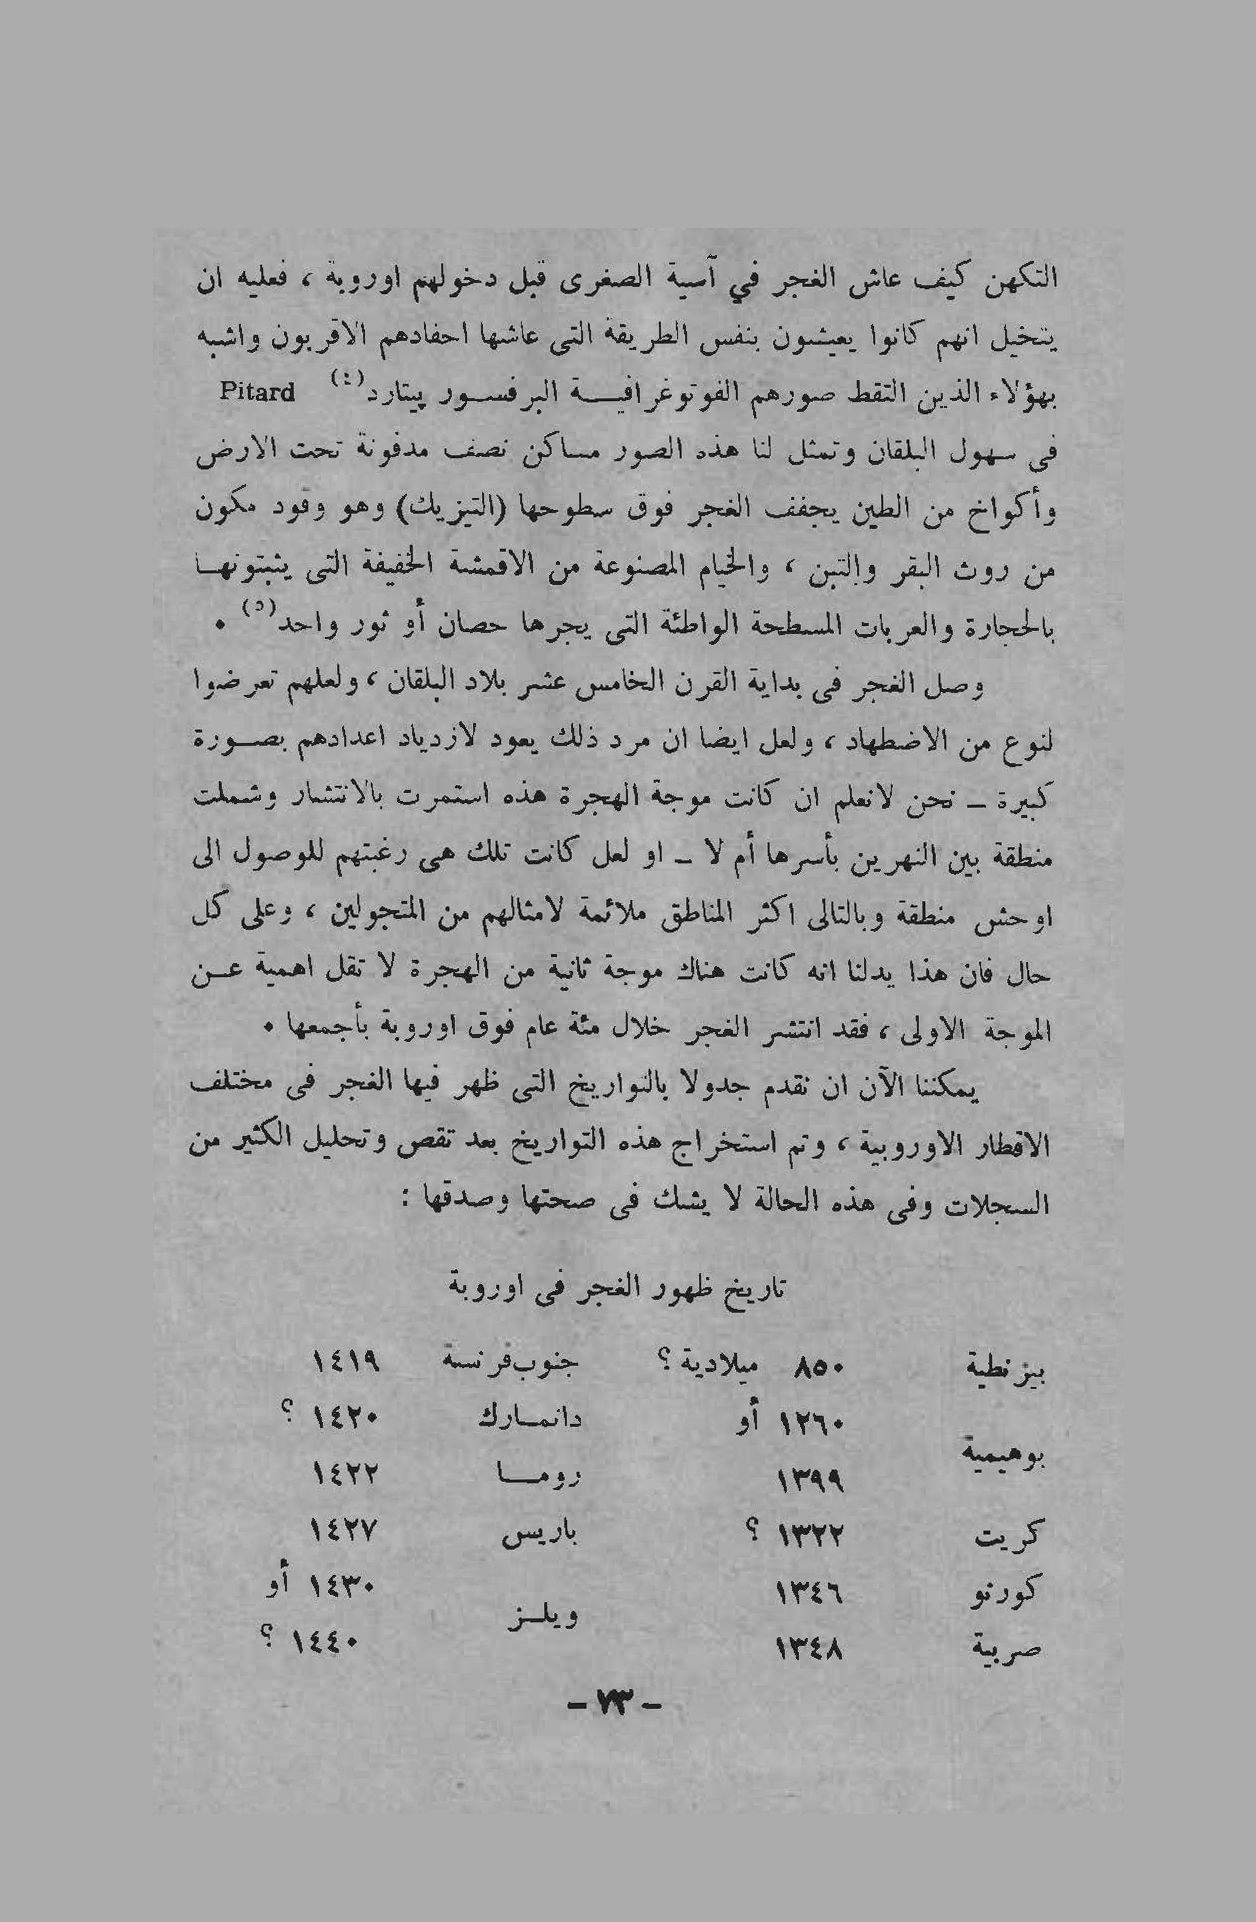 التكهن كيف عاش الغجر في آسية الصغرى قبل دخولهم اوروبة ، فعليه ان
يتخيل انهم كانوا يعيشون بنفس الطريقة التى عاشها احفادهم الاقربون واشبه
بهؤلاء الذين التقط صورهم الفوتوغرافيـــة البرفســور پيتارد(٤) Pitard
فى سهول البلقان وتمثل لنا هذه الصور مساكن نصف مدفونة تحت الارض
وأكواخ من الطين يجفف الغجر فوق سطوحها (التيزيك) وهو وقود مكون
من روث البقر والتبن ، والخيام المصنوعة من الاقمشة الخفيفة التى يثبتونهــا
بالحجارة والعربات المسطحة الواطئة التى يجرها حصان أو ثور واحد(٥) .
وصل الغجر فى بداية القرن الخامس عشر بلاد البلقان ، ولعلهم تعرضوا
لنوع من الاضطهاد ، ولعل ايضا ان مرد ذلك يعود لازدياد اعدادهم بصــورة
كبيرة – نحن لانعلم ان كانت موجة الهجرة هذه استمرت بالانتشار وشملت
منطقة بين النهرين بأسرها أم لا – او لعل كانت تلك هى رغبتهم للوصول الى
اوحش منطقة وبالتالى اكثر المناطق ملائمة لامثالهم من المتجولين ، وعلى كل
حال فان هذا يدلنا انه كانت هناك موجة ثانية من الهجرة لا تقل اهمية عــن
الموجة الاولى ، فقد انتشر الغجر خلال مئة عام فوق اوروبة بأجمعها .
يمكننا الآن ان نقدم جدولا بالتواريخ التى ظهر فيها الغجر فى مختلف
الاقطار الاوروبية ، وتم استخراج هذه التواريخ بعد تقص وتحليل الكثير من
السجلات وفى هذه الحالة لا يشك فى صحتها وصدقها :
تاريخ ظهور الغجر فى اوروبة
بيزنطية ٨٥٠ ميلادية ؟ جنوب فرنسة ١٤١٩
١٢٦٠ أو دانمــارك ١٤٢٠ ؟
بوهيمية
١٣٩٩ رومـــا ١٤٢٢
كريت ١٣٢٢ ؟ باريس ١٤٢٧
كورنو ١٣٤٦ ١٤٣٠ أو
ويلــز
صربية ١٣٤٨ ١٤٤٠ ؟
– ٧٣ –